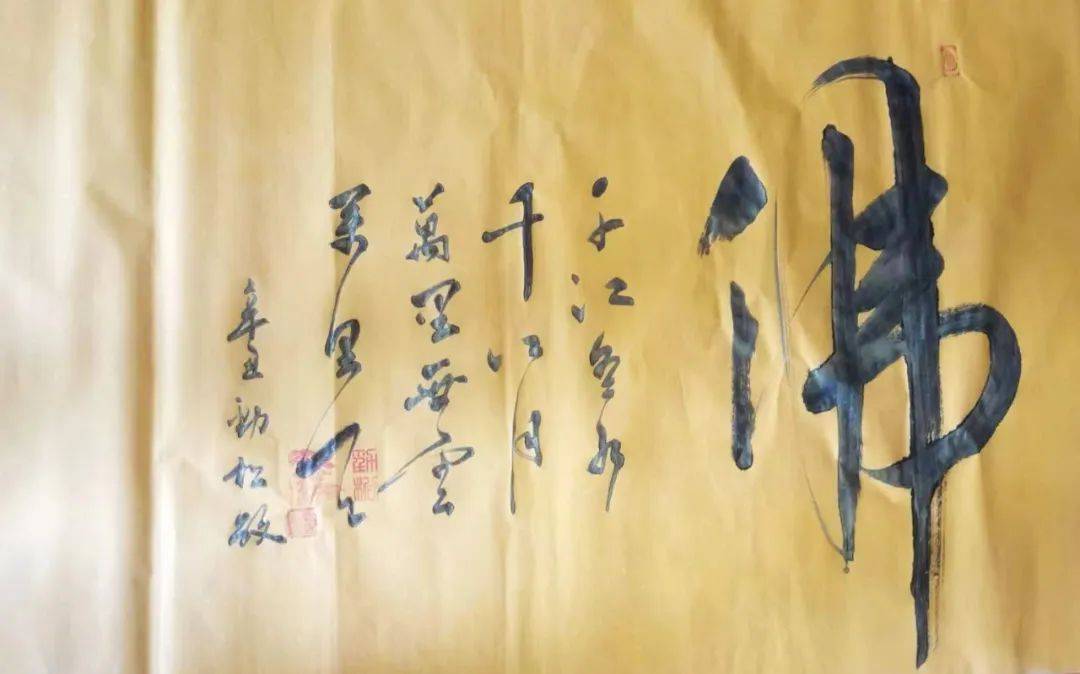 佛
千江有水
千江月
萬里無雲
萬里天
辛丑勁松敬